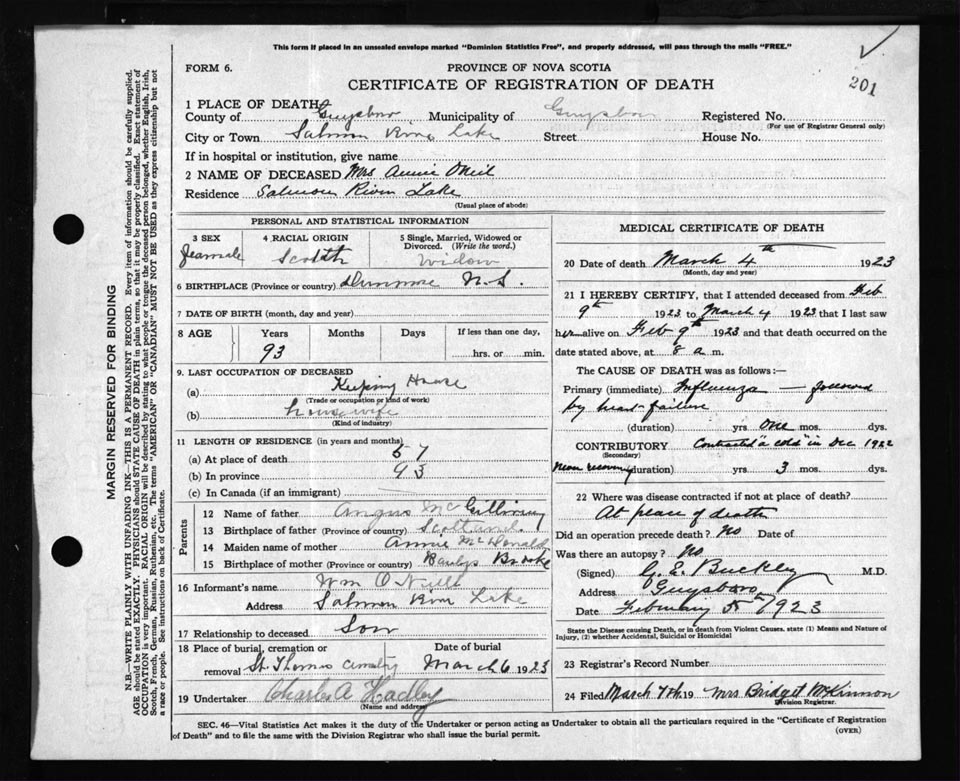 This form if placed in an unsealed envelope marked "Dominion Statistics Free", and properly addressed, will pass through the mails "FREE."
FORM 6.
PROVINCE OF NOVA SCOTIA
CERTIFICATE OF REGISTRATION OF DEATH
201
1 PLACE OF DEATH
County of Guysboro Municipality of Guysboro Registered No.
(For use of Registrar General only)
City or Town Salmon River Lake Street House No.
If in hospital or institution, give name
2 NAME OF DECEASED Mrs Annie ONeil
Residence Salmon River Lake
(Usual place of abode)
PERSONAL AND STATISTICAL INFORMATION
3 SEX 4 RACIAL ORIGIN 5 Single, Married, Widowed or Divorced. (Write the word.)
Feamale Scotth Widow
6 BIRTHPLACE (Province or country) Dunmore N.S.
7 DATE OF BIRTH (month, day and year)
8 AGE Years Months Days If less than one day,
93 hrs. or min.
9. LAST OCCUPATION OF DECEASED
(a) Keeping House
(Trade or occupation or kind of work)
(b) housewife
(Kind of industry)
11 LENGTH OF RESIDENCE (in years and months)
(a) At place of death 57
(b) In province 93
(c) In Canada (if an immigrant)
Parents
12 Name of father Angus McGillivray
13 Birthplace of father (Province or country) Scotland
14 Maiden name of mother Annie McDonald
15 Birthplace of mother (Province or country) Brooke
16 Informant's name Wm O Neill
Address Salmon River Lake
17 Relationship to deceased Son
18 Place of burial, cremation or removal St Thomas Cemetry
Date of burial March 6 1923
19 Undertaker Charles A Hadley
(Name and address)
MEDICAL CERTIFICATE OF DEATH
20 Date of death March 4th 1923
(Month, day and year)
21 I HEREBY CERTIFY, that I attended deceased from Feb
9th 1923 to March 4 1923 that I last saw
her alive on Feb 9th 1923 and that death occurred on
date stated above, at 8 a m.
The CAUSE OF DEATH was as follows:—
Primary (immediate) Influenza — followed
by heart failure
(duration) yrs. One mos. dys.
CONTRIBUTORY Contracted "a cold" in Dec 1922
(Secondary)
Never recovering (duration) yrs. 3 mos. dys.
22 Where was disease contracted if not at place of death?
At place of death
Did an operation precede death? No Date of
Was there an autopsy? No
(Signed) G. E. Buckley M.D.
Address Guysboro
Date February 5 1923
State the Disease causing Death, or in death from Violent Causes, state (1) Means and Nature of
Injury, (2) whether Accidental, Suicidal or Homicidal
23 Registrar's Record Number
24 Filed March 7th 19 Mrs Bridget McKinnon
Division Registrar.
SEC. 46—Vital Statistics Act makes it the duty of the Undertaker or person acting as Undertaker to obtain all the particulars required in the "Certificate of Registration
of Death" and to file the same with the Division Registrar who shall issue the burial permit.
(OVER)
MARGIN RESERVED FOR BINDING
N.B.—WRITE PLAINLY WITH UNFADING INK—THIS IS A PERMANENT RECORD. Every item of information should be carefully supplied.
AGE should be stated EXACTLY. PHYSICIANS should STATE CAUSE OF DEATH in plain terms, so that it may be properly classified. Exact statement of
OCCUPATION is very important. RACIAL ORIGIN will be described by stating to what people or tongue the deceased person belonged, whether English, Irish,
Scotch, French, German, Russian, Ruthenian, etc. The terms "AMERICAN" or "CANADIAN" MUST NOT BE USED as they express citizenship but not
a race or people. See instructions on back of Certificate.